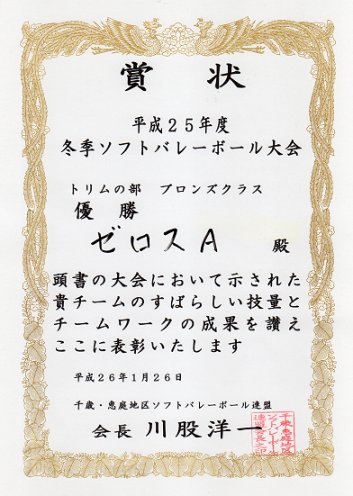 賞状
平成25年度
冬季ソフトバレーボール大会
トリムの部 ブロンズクラス
優勝
ゼロスA 殿
頭書の大会において示された
貴チームのすばらしい技量と
チームワークの成果を讃え
ここに表彰いたします
平成26年1月26日
千歳・恵庭地区ソフトバレーボール連盟
会長 川股洋一